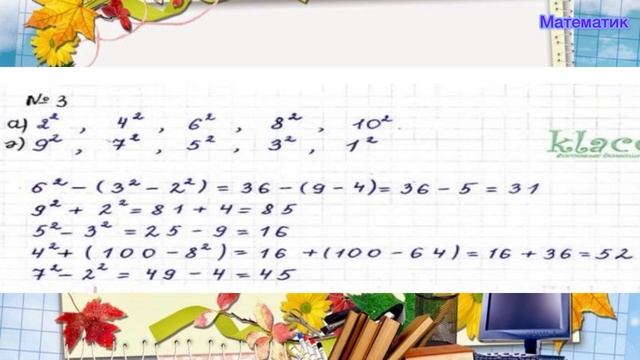 Математик
№ 3
а) 2² , 4² , 6² , 8² , 10²
ә) 9² , 7² , 5² , 3² , 1²
klass
6² – (3² – 2²) = 36 – (9 – 4) = 36 – 5 = 31
9² + 2² = 81 + 4 = 85
5² – 3² = 25 – 9 = 16
4² + (100 – 8²) = 16 + (100 – 64) = 16 + 36 = 52
7² – 2² = 49 – 4 = 45